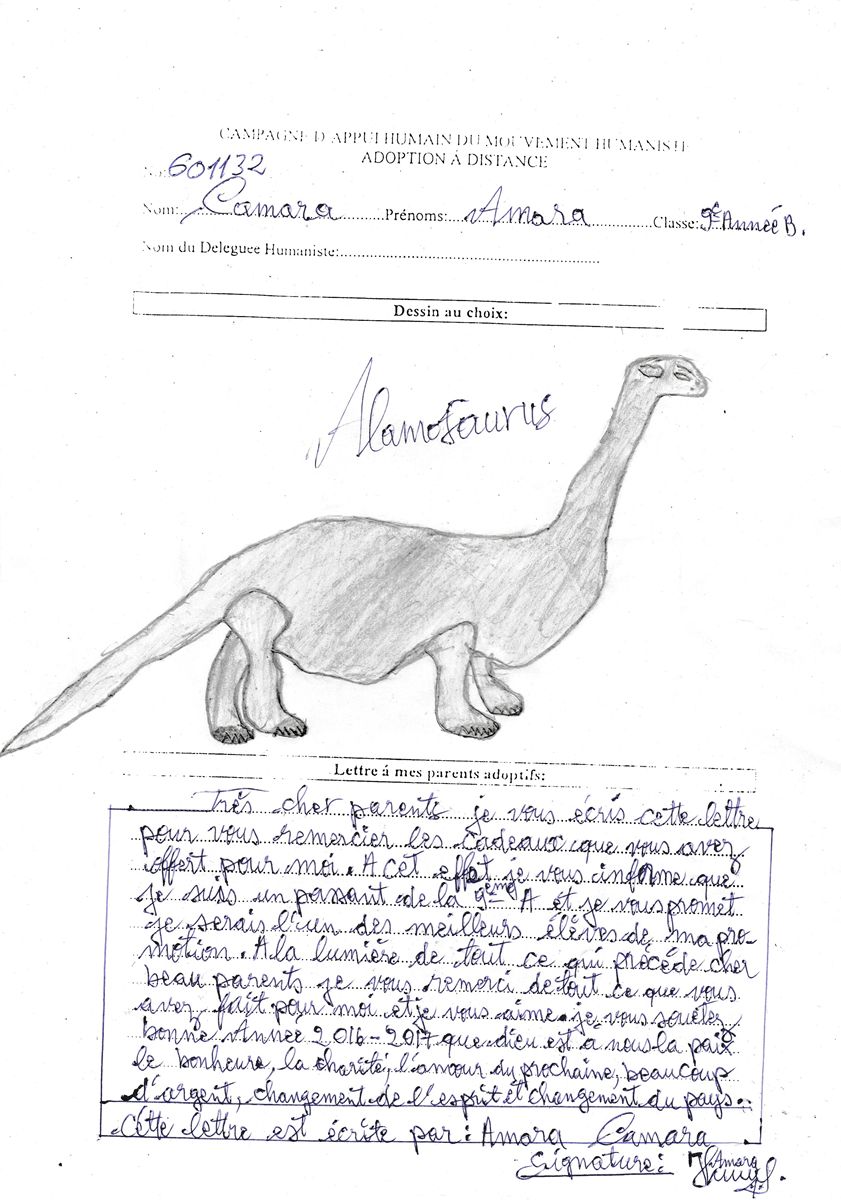 CAMPAGNE D'APPUI HUMAIN DU MOUVEMENT HUMANISTE
ADOPTION Á DISTANCE
No: 601132
Nom: Camara Prénoms: Amara Classe: 9e Année B.
Nom du Deleguee Humaniste:
Dessin au choix:
Alamosaurus
Lettre á mes parents adoptifs:
Très cher parents je vous écris cette lettre
pour vous remercier les cadeaux que vous avez
offert pour moi. A cet effet je vous informe que
je suis un passant de la 9ème A et je vous promet
je serais l'un des meilleurs élèves de ma pro-
motion. A la lumière de tout ce qui procède cher
beau parents je vous remerci de tout ce que vous
avez fait pour moi et je vous aime. je vous
bonne Année 2016-2017 que dieu est a nous la paix
le bonheure, la charité, l'amour du prochaine, beaucoup
d'argent, changement de l'esprit et changement du pays.
Cette lettre est écrite par: Amara Camara
Signature: Amara